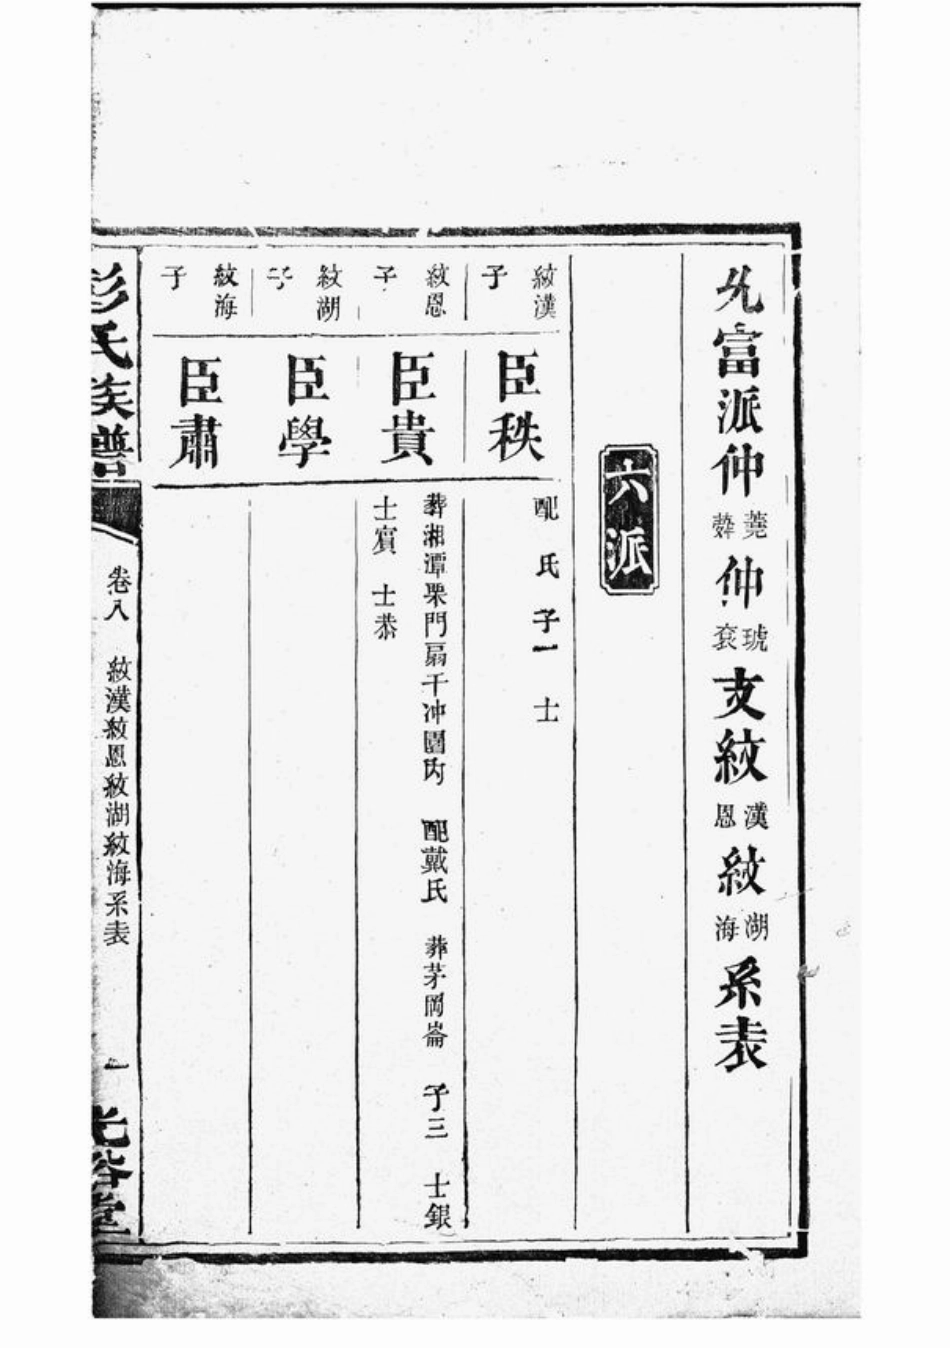 允富派仲莞龚仲琥衮支紋漢恩紋湖海系表
六派
紋漢子
臣秩
配 氏 子一 士
紋恩子
臣貴
葬湘潭栗門扇千冲圍内 配戴氏 葬茅岡崙 子三 士銀
士賓 士恭
紋湖子
臣學
紋海子
臣肅
彭氏族譜
卷八 紋漢紋恩紋湖紋海系表
一 光裕堂